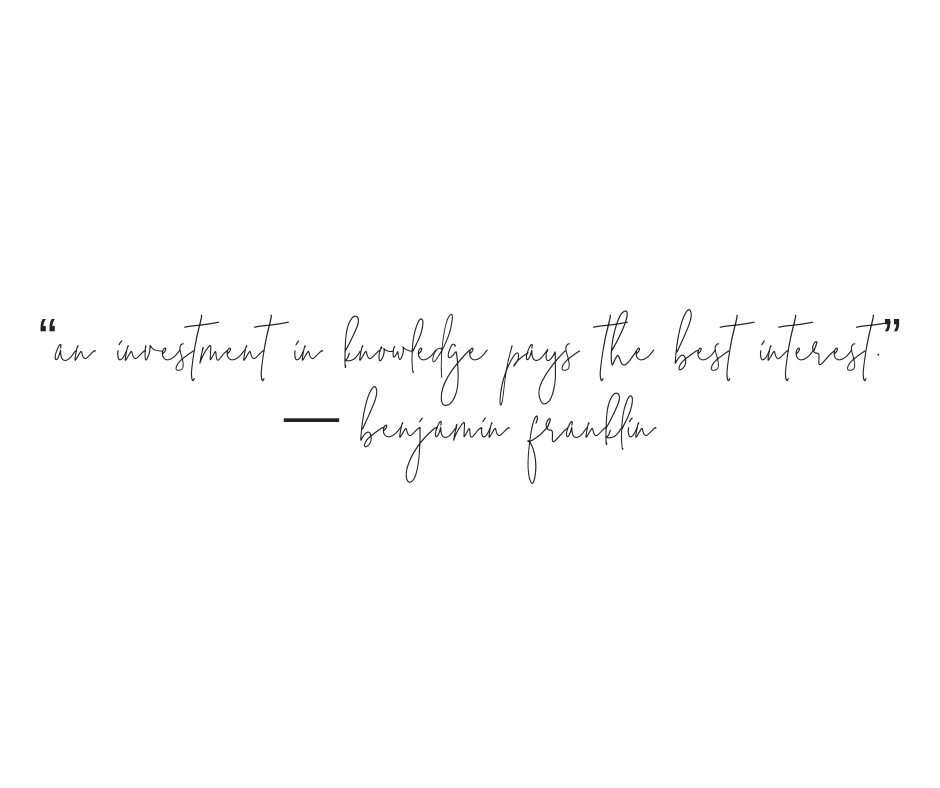 “an investment in knowledge pays the best interest.”
— benjamin franklin